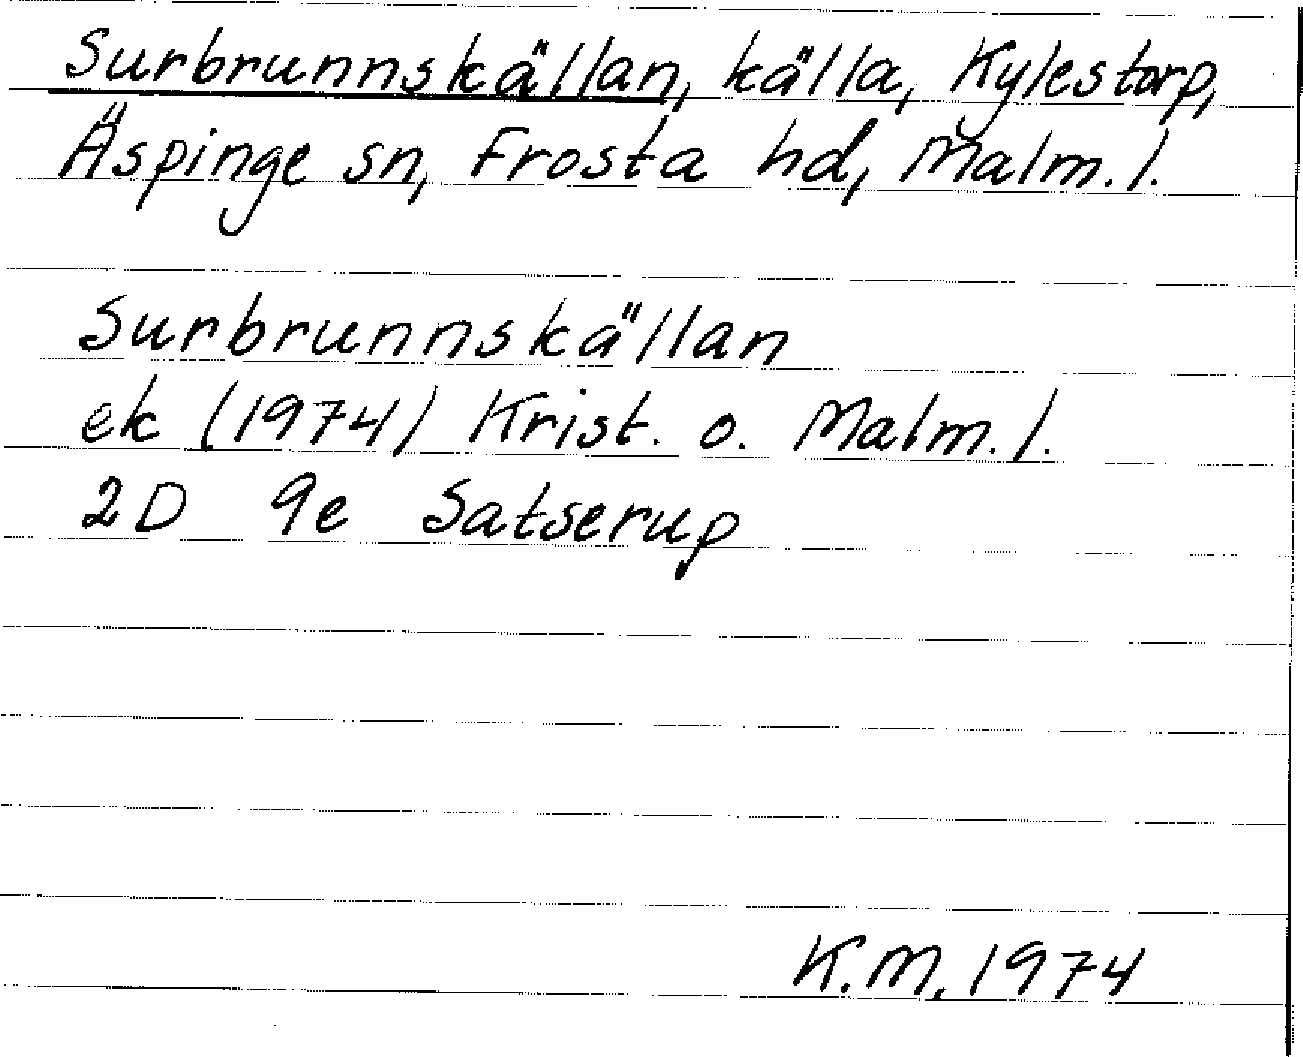 Surbrunnskällan, källa, Kylestorp,
Äspinge sn, Frosta hd, Malm. l.
Surbrunnskällan
ek (1974) Krist. o. Malm. l.
2D 9e Satserup
K.M. 1974